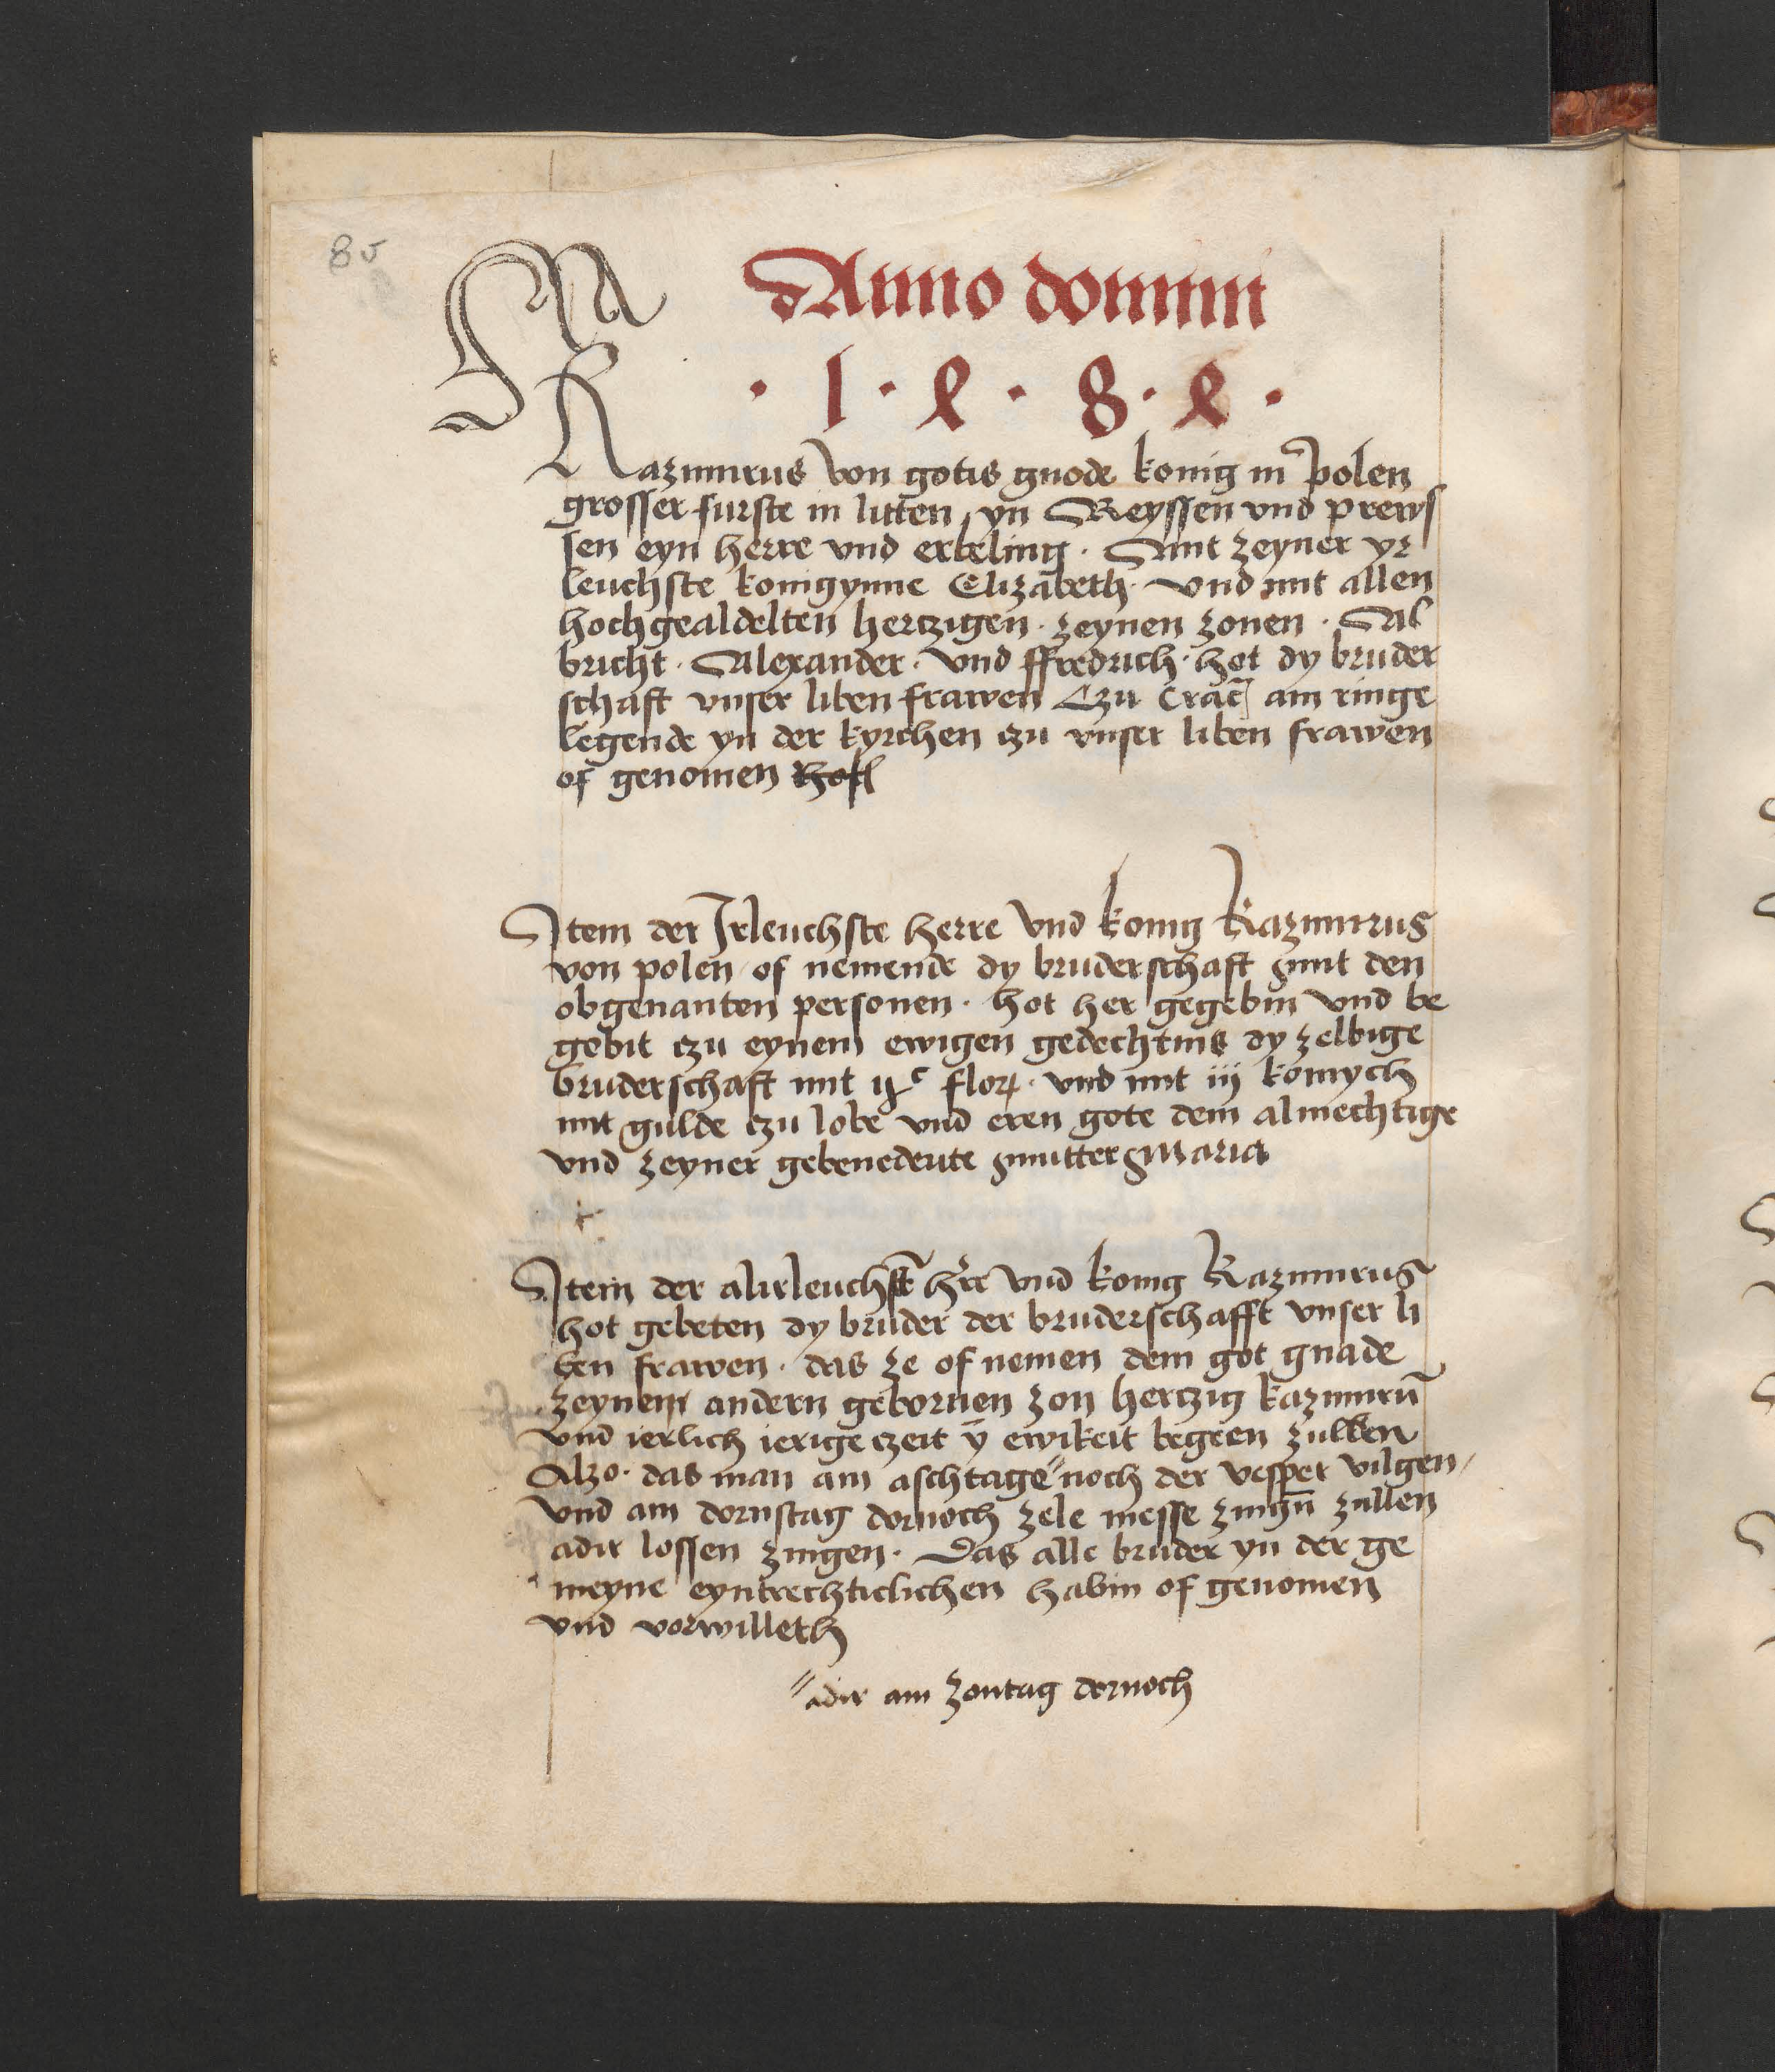 8v
Anno domini
· 1 · 4 · 8 · 4 ·
Kazimirus von gotis gnode konig in polen
grosser furste in litten yn Reyssen vnd prews
sen eyn herre vnd erbeling · Mit zeyner yr
leuchste konigynne Elizabeth · vnd mit allen
hochgealdelten hertzigen · zeynen zonen · Al
bricht · Alexander · vnd ffredrich · hot dy bruder
schaft vnser liben frawen Czu Crac am ringe
legende yn der kyrchen czu vnser liben frawen
of genomen
Item der Irleuchste herre vnd konig Kazimirus
von polen of nemende dy bruderschaft mit den
obgenanten personen · hot her gegebin vnd be
gobit czu eynem ewigen gedechtnis dy zelbige
bruderschaft mit flor · vnd mit iij
mit gulde czu lobe vnd eren gote dem almechtige
vnd zeyner gebenedeute mutter Maria
Item der alirleuchst hre vnd konig Kazimirus
hot gebeten dy bruder der bruderschafft vnser li
ben frawen · das ze of nemen dem got gnade
zeynem andern gebornen zon hertzig kazimirū
vnd ierlich ierige czeit ȳ ewikeit begeen zullen
Alzo · das man am aschtage " noch der vesper vilgen
vnd am dornstag dornoch zele messe zingn̄ zullen
adir lossen zingen · Das alle bruder yn der ge
meyne eyntrechticlichen habin of genomen
vnd vorwilleth
" adir am zontag dornoch